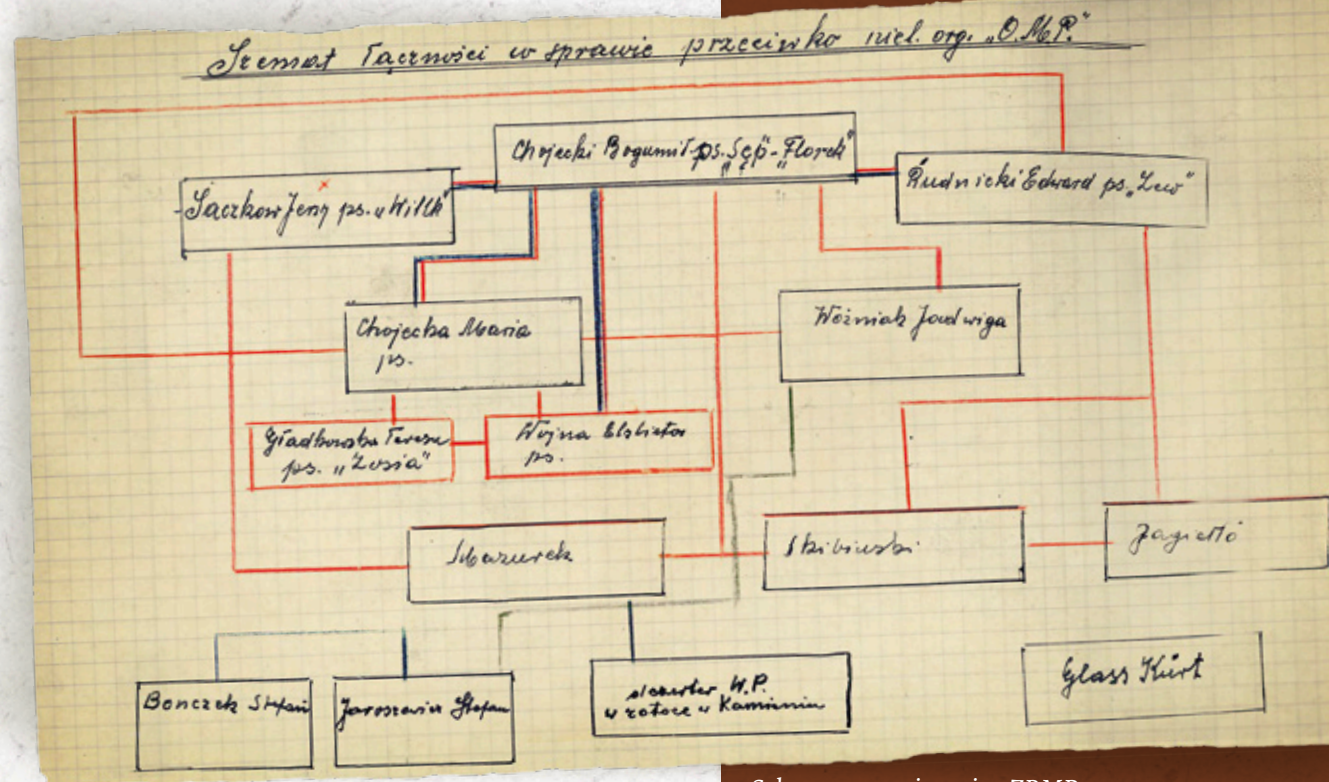 Szemat łączności w sprawie przeciwko niel. org. „O.M.P."
Chojecki Bogumił ps. „Sęp" - „Florek"
Saczkow Jerzy ps. „Wilk"
Rudnicki Edward ps. „Lew"
Chojecka Maria
ps.
Woźniak Jadwiga
Gładkowska Teresa
ps. „Zosia"
Wojna Elżbieta
ps.
Mazurek
Skibiński
Jagiełło
Bonczek Stefan
Jaroszewicz Stefan
dezerter W.P.
w Kamieniu
Glass Kurt